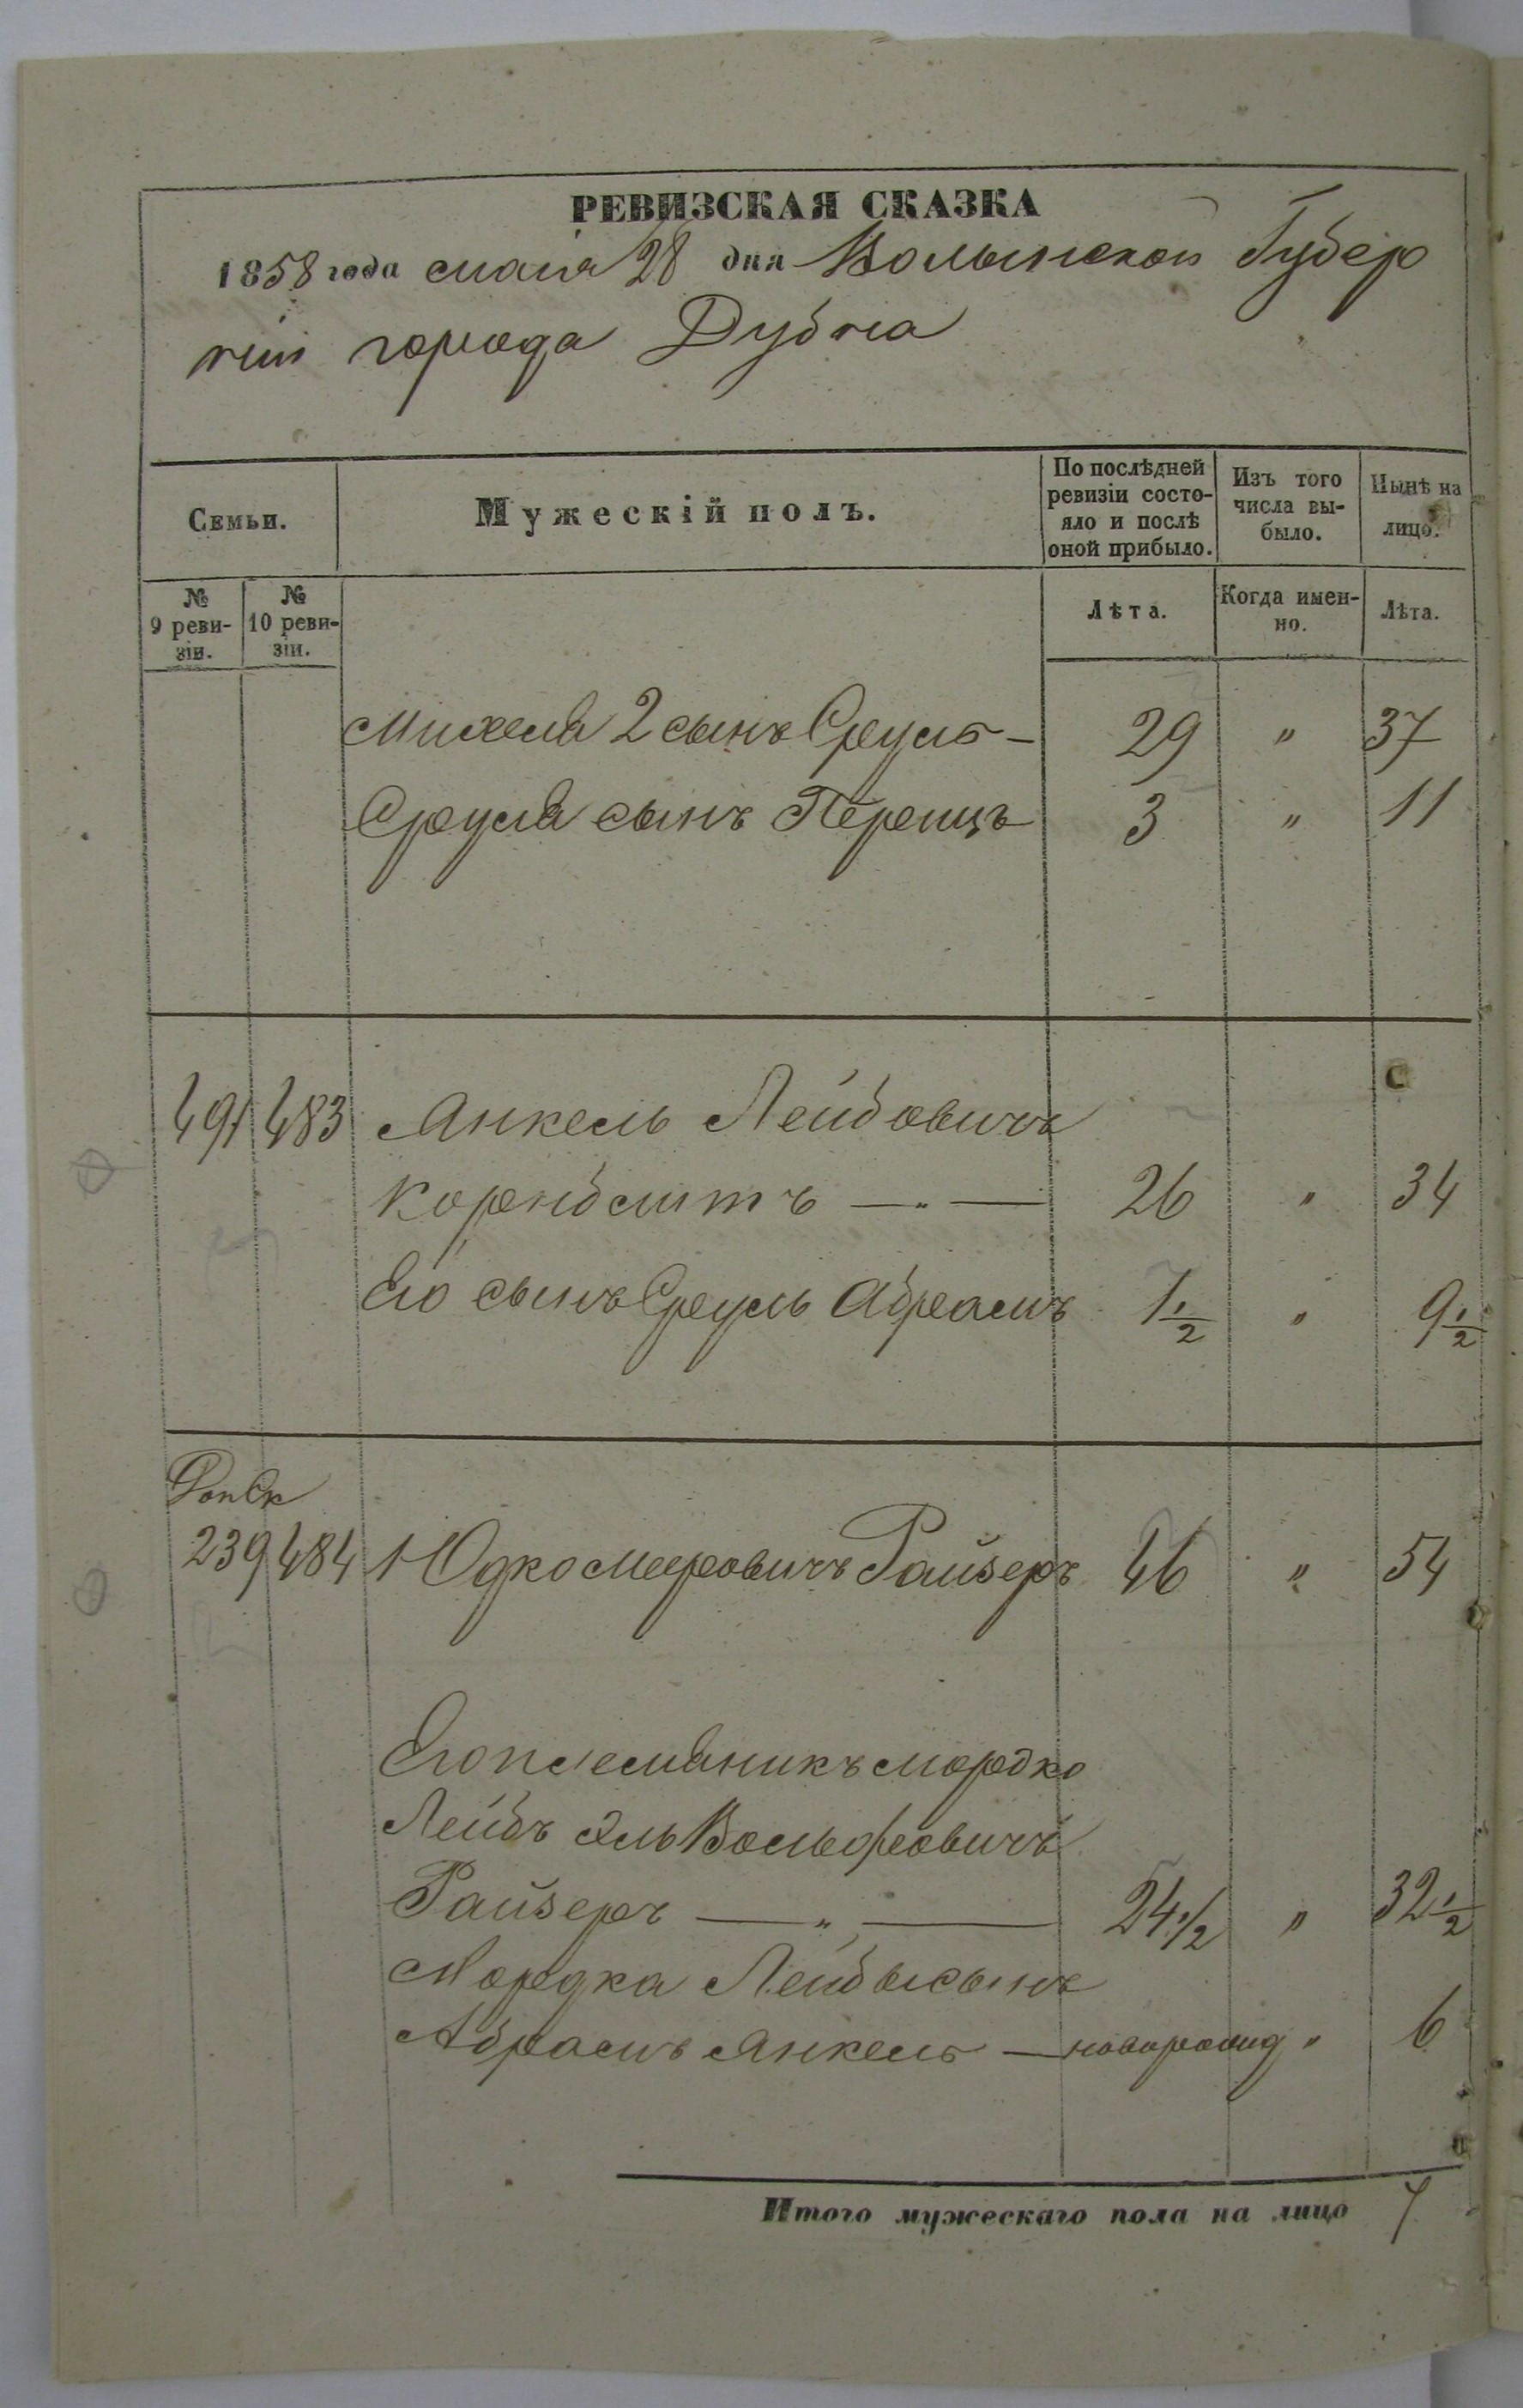 РЕВИЗСКАЯ СКАЗКА
1858 года маія 28 дня Волынской Губер
ніи города Дубна
Семьи.
Мужескій полъ.
По послѣдней ревизіи состо-
яло и послѣ оной прибыло.
Изъ того числа вы-
было.
Нынѣ на лицо.
№ 9 реви-
зіи.
№ 10 реви-
зіи.
Лѣта.
Когда имен-
но.
Лѣта.
Михеля 2 сынъ Сруль — 29 " 37
Сруля сынъ Перецъ 3 " 11
491 483 Анкель Лейбовичъ
Корнблитъ — " — 26 " 34
Его сынъ Сруль Абрамъ 1 1/2 " 9 1/2
239 484 Юдко Мееровичъ Райзеръ 46 " 54
Его племяникъ Мордко
Лейбъ Эль Вольфовичъ
Райзеръ — " — 24 1/2 " 32 1/2
Мордка Лейбы сынъ
Абрамъ Анкель — новорожд " 6
Итого мужескаго пола на лицо 7